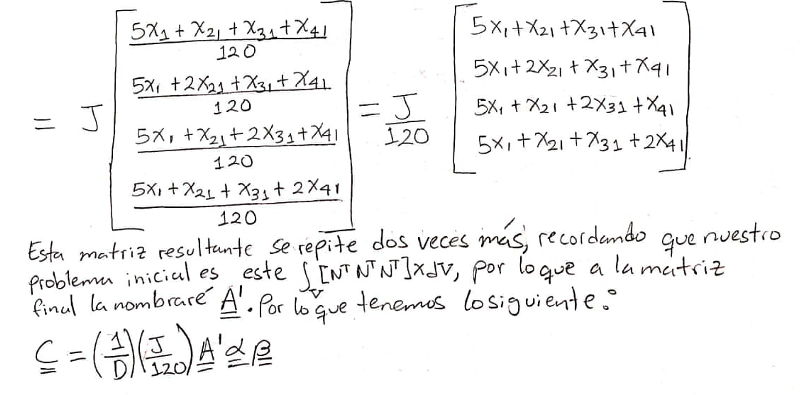 = J [ (5X1 + X21 + X31 + X41)/120 ] = J/120 [ 5X1+X21+X31+X41 ]
[ (5X1 + 2X21 + X31 + X41)/120 ] [ 5X1+2X21+X31+X41 ]
[ (5X1 + X21 + 2X31 + X41)/120 ] [ 5X1+X21+2X31+X41 ]
[ (5X1 + X21 + X31 + 2X41)/120 ] [ 5X1+X21+X31+2X41 ]
Esta matriz resultante se repite dos veces más, recordando que nuestro
problema inicial es este ∫v [Nᵀ Nᵀ Nᵀ]XdV, por lo que a la matriz
final la nombraré A'. Por lo que tenemos lo siguiente:
C = (1/D)(J/120) A' α β